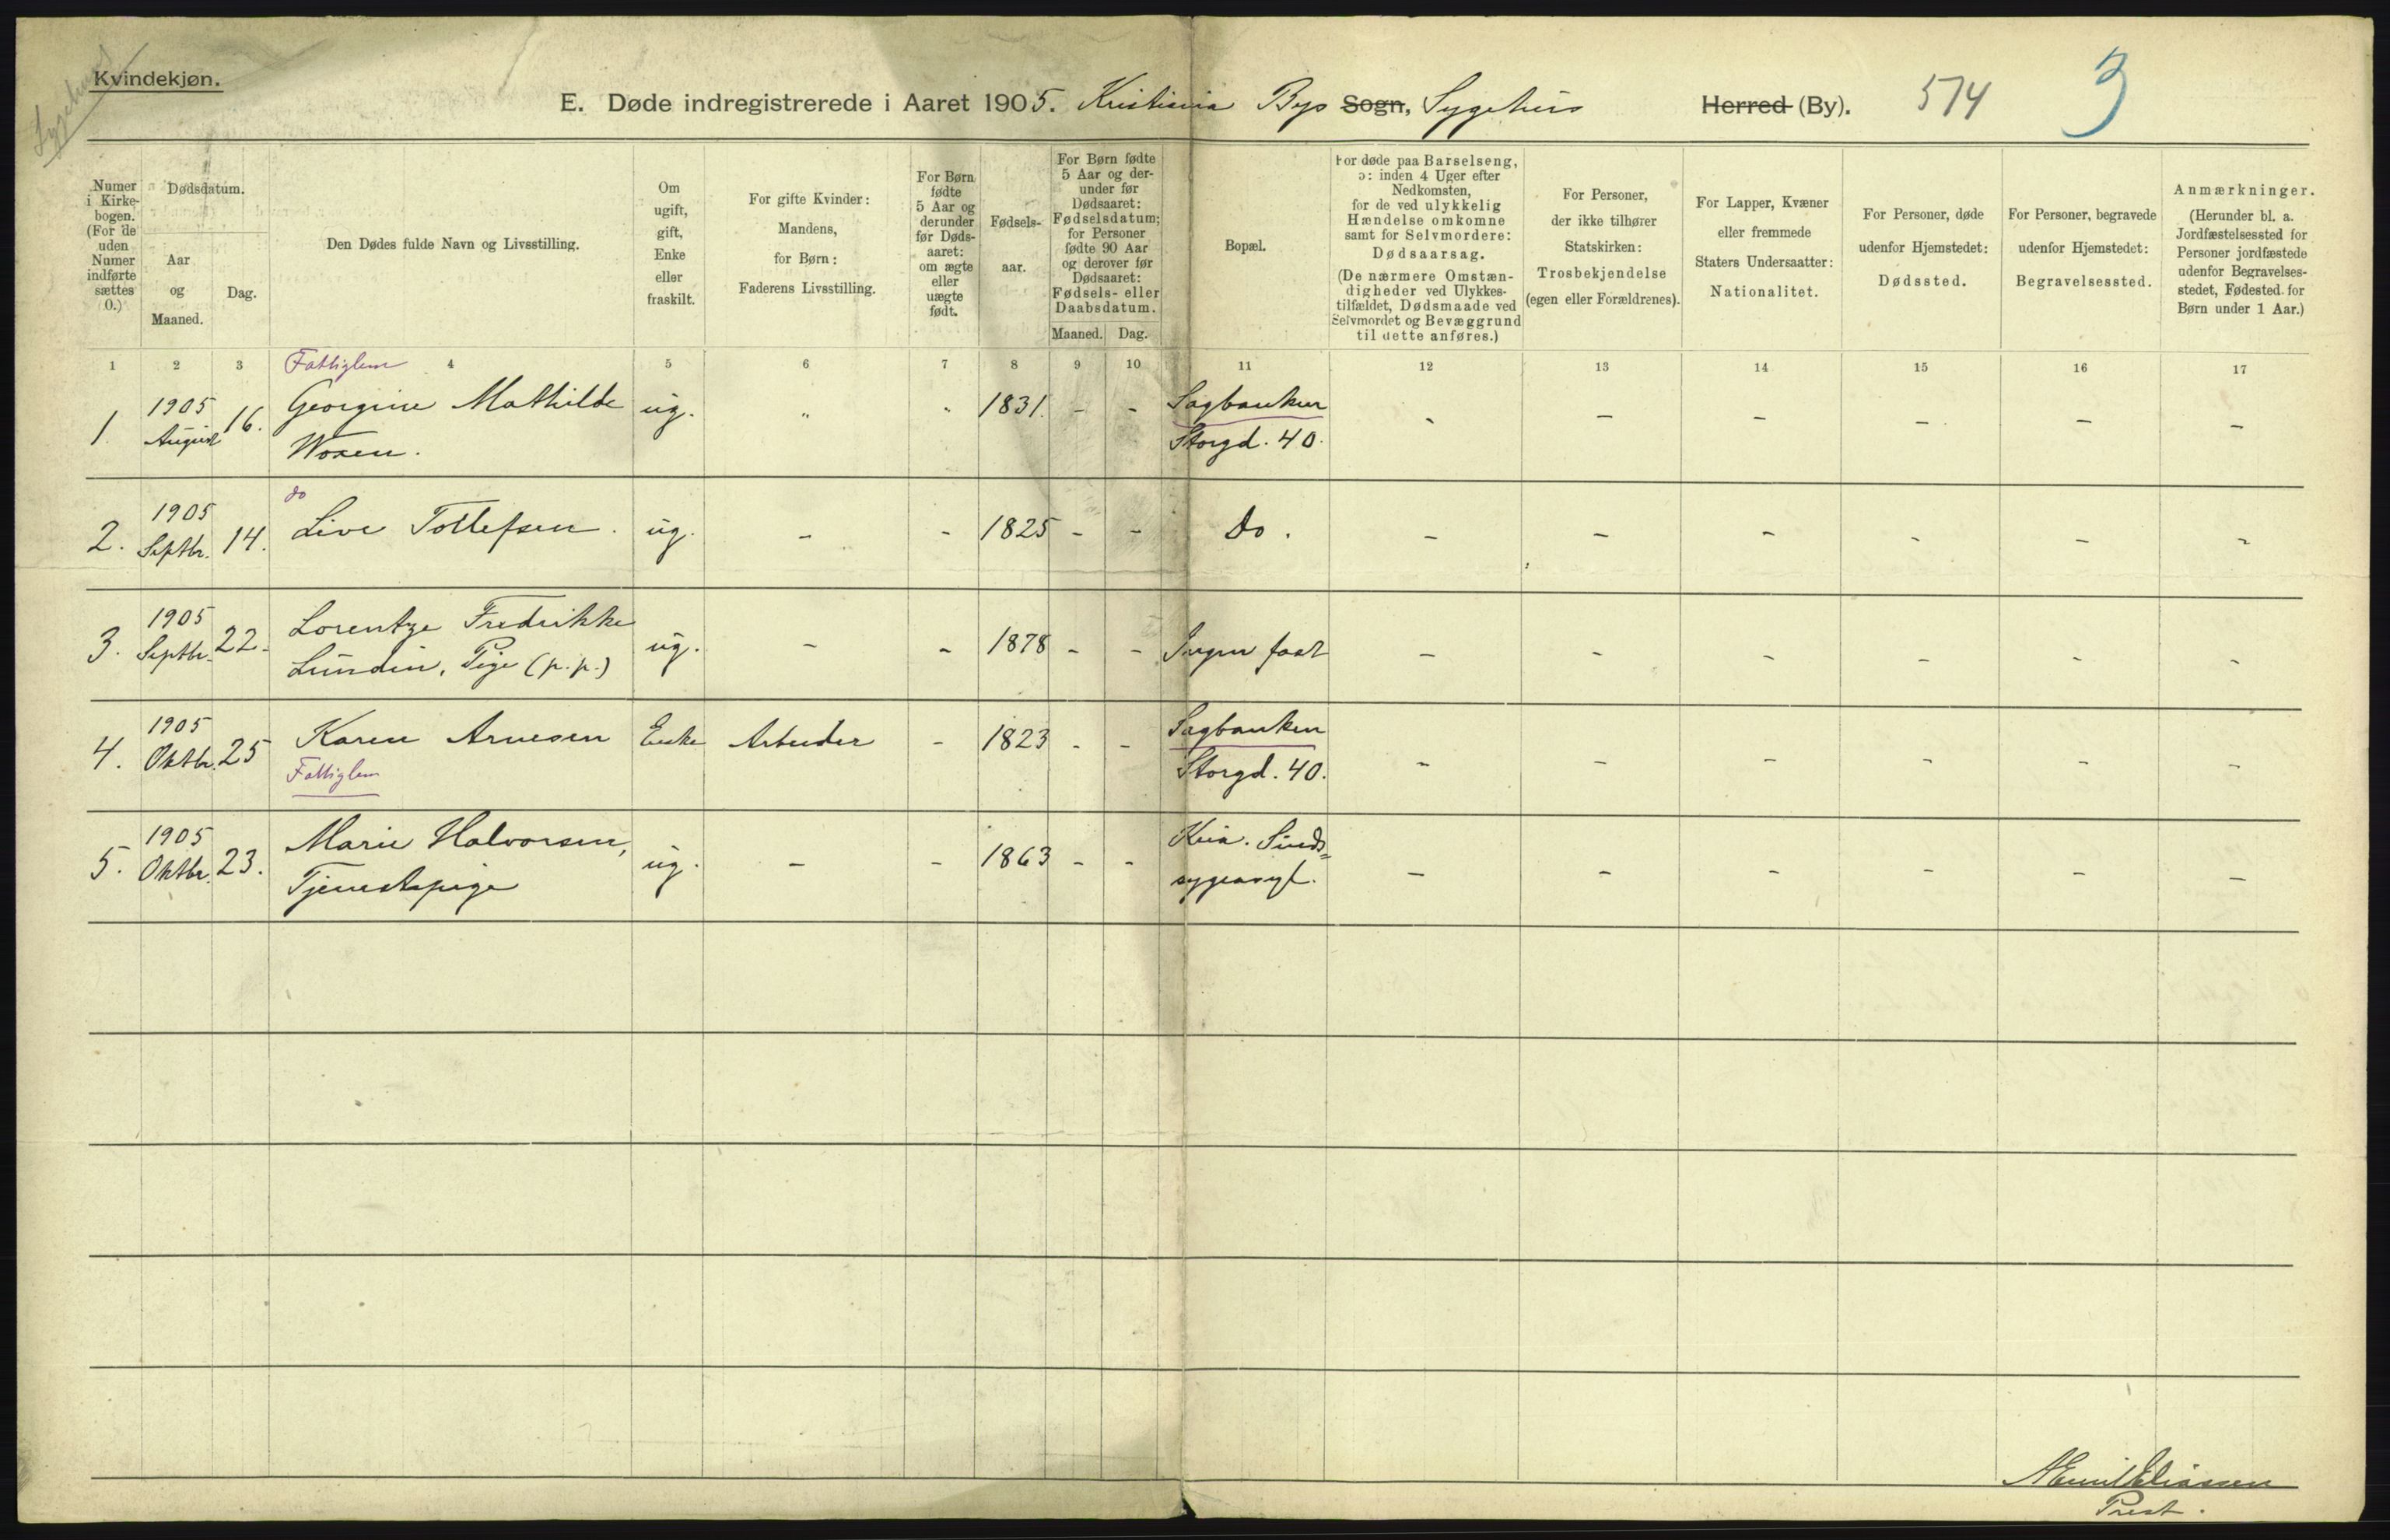 Sygehuset
Kvindekjøn.
E. Døde indregistrerede i Aaret 1905. Kristiania Bys Sogn, Sygehus Herred (By). 574 3
Numer
i Kirke-
bogen.
(For de
uden
Numer
indførte
sættes
0.)
Dødsdatum.
Aar
og
Maaned.
Dag.
Den Dødes fulde Navn og Livsstilling.
Om
ugift,
gift,
Enke
eller
fraskilt.
For gifte Kvinder:
Mandens,
for Børn:
Faderens Livsstilling.
For Børn
fødte
5 Aar og
derunder
før Døds-
aaret:
om ægte
eller
uægte
født.
Fødsels-
aar.
For Børn fødte
5 Aar og der-
under før
Dødsaaret:
Fødselsdatum;
for Personer
fødte 90 Aar
og derover før
Dødsaaret:
Fødsels- eller
Daabsdatum.
Maaned. Dag.
Bopæl.
For døde paa Barselseng,
ɔ: inden 4 Uger efter
Nedkomsten,
for de ved ulykkelig
Hændelse omkomne
samt for Selvmordere:
Dødsaarsag.
(De nærmere Omstæn-
digheder ved Ulykkes-
tilfældet, Dødsmaade ved
Selvmordet og Bevæggrund
til dette anføres.)
For Personer,
der ikke tilhører
Statskirken:
Trosbekjendelse
(egen eller Forældrenes).
For Lapper, Kvæner
eller fremmede
Staters Undersaatter:
Nationalitet.
For Personer, døde
udenfor Hjemstedet:
Dødssted.
For Personer, begravede
udenfor Hjemstedet:
Begravelsessted.
Anmærkninger.
(Herunder bl. a.
Jordfæstelsessted for
Personer jordfæstede
udenfor Begravelses-
stedet, Fødested for
Børn under 1 Aar.)
1 2 3 4 5 6 7 8 9 10 11 12 13 14 15 16 17
Fattiglem
1. 1905 August 16. Georgine Mathilde ug. " " 1831. - - Sagbanken - - - - - -
Woxen. Storgd. 40.
do
2. 1905 Septbr. 14. Live Tollefsen. ug. - - 1825 - - Do. - - - - - -
3. 1905 Septbr. 22. Lorentze Fredrikke ug. - - 1878 - - Ingen fast - - - - - -
Lundin, Pige (p.p.)
4. 1905 Oktbr. 25 Karen Arnesen Enke Arbeider - 1823 - - Sagbanken - - - - - -
Fattiglem Storgd. 40.
5. 1905 Oktbr. 23. Marie Halvorsen, ug. - - 1863 - - Kria. Sinds= - - - - - -
Tjenestepige sygeasyl.
Eliassen
Prest.